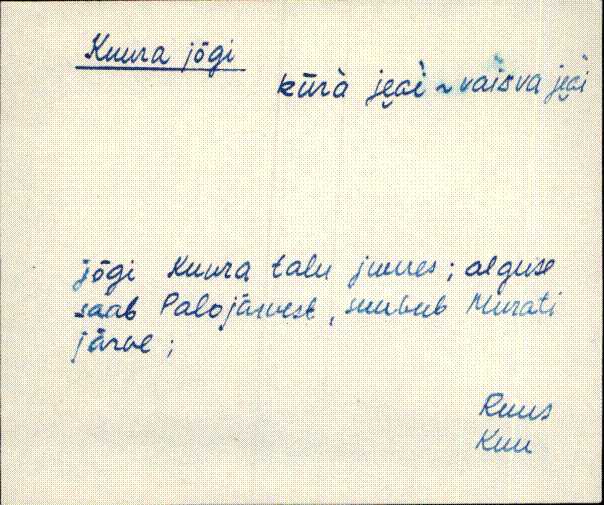 Kuura jõgi
kūrà jęɢì ~ vaìsva jęɢì
jõgi Kuura talu juures; alguse
saab Palojärvest, suubub Murati
järve;
Ruus
Kuu